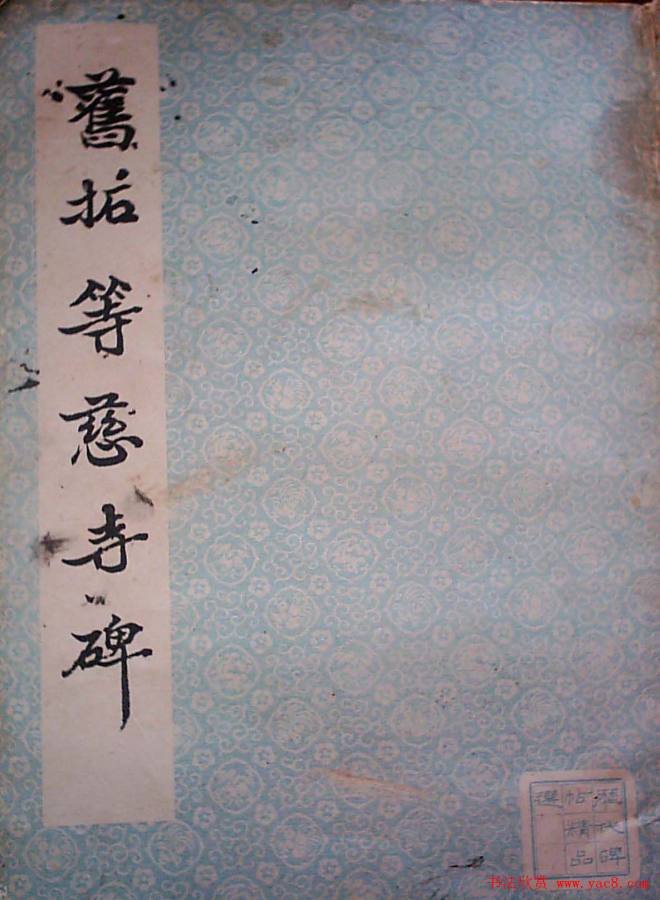 舊拓等慈寺碑
歷代碑
帖精品
選
书法欣赏 www.yac8.com